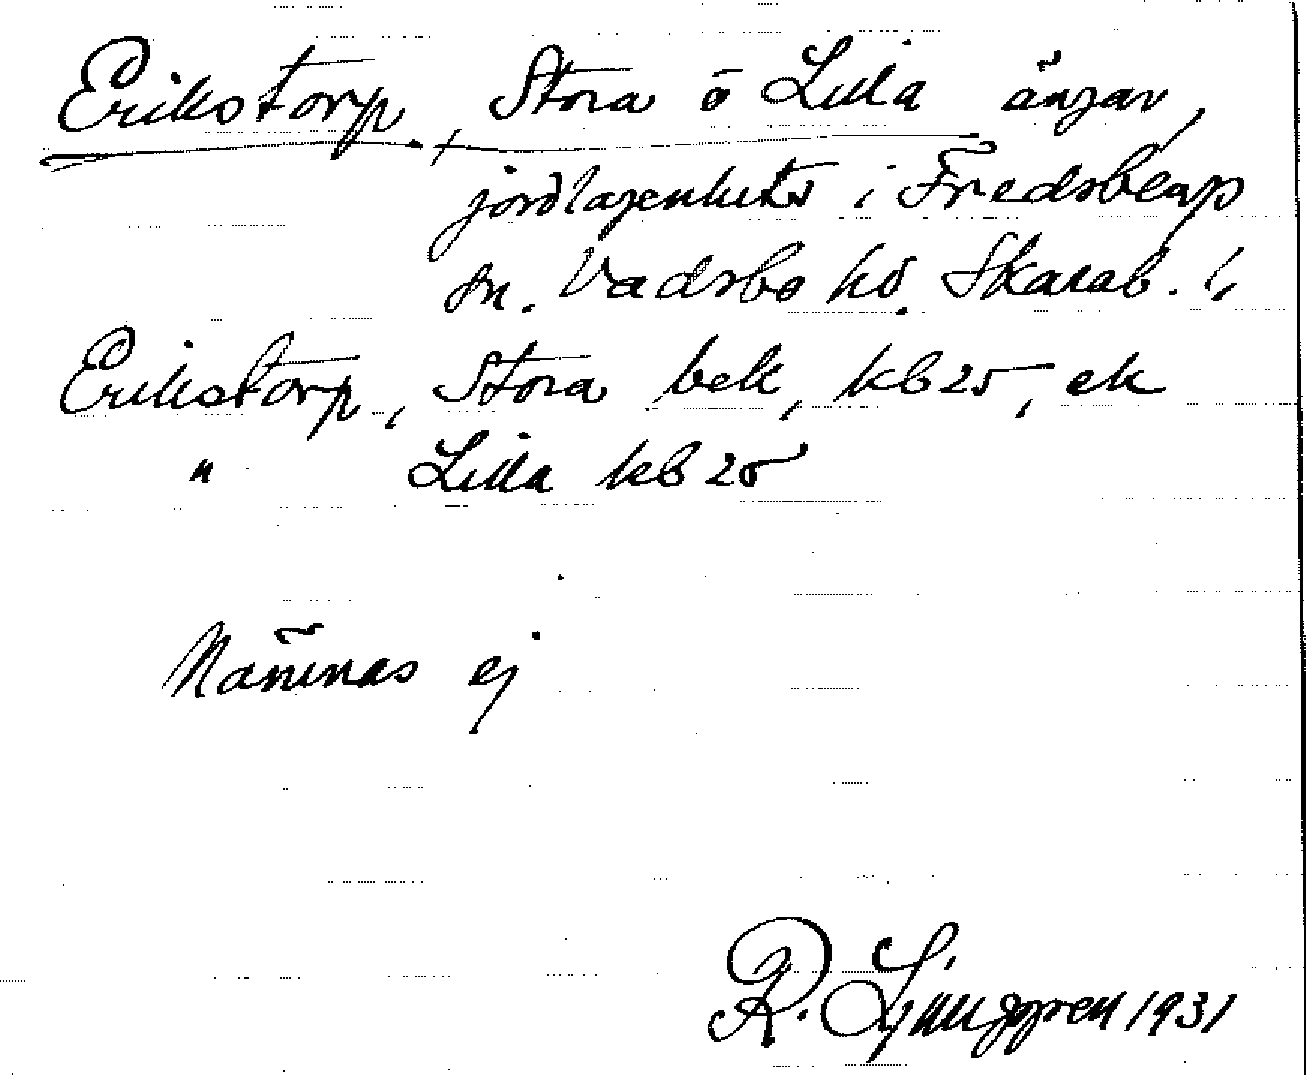 Erikstorp, Stora o Lilla ängar,
jordlägenheter i Fredsberg
sn. Vadsbo hd. Skarab. l.
Erikstorp, Stora bek, kb 25, ek
" Lilla kb 25
Nämnas ej
R. Ljunggren 1931